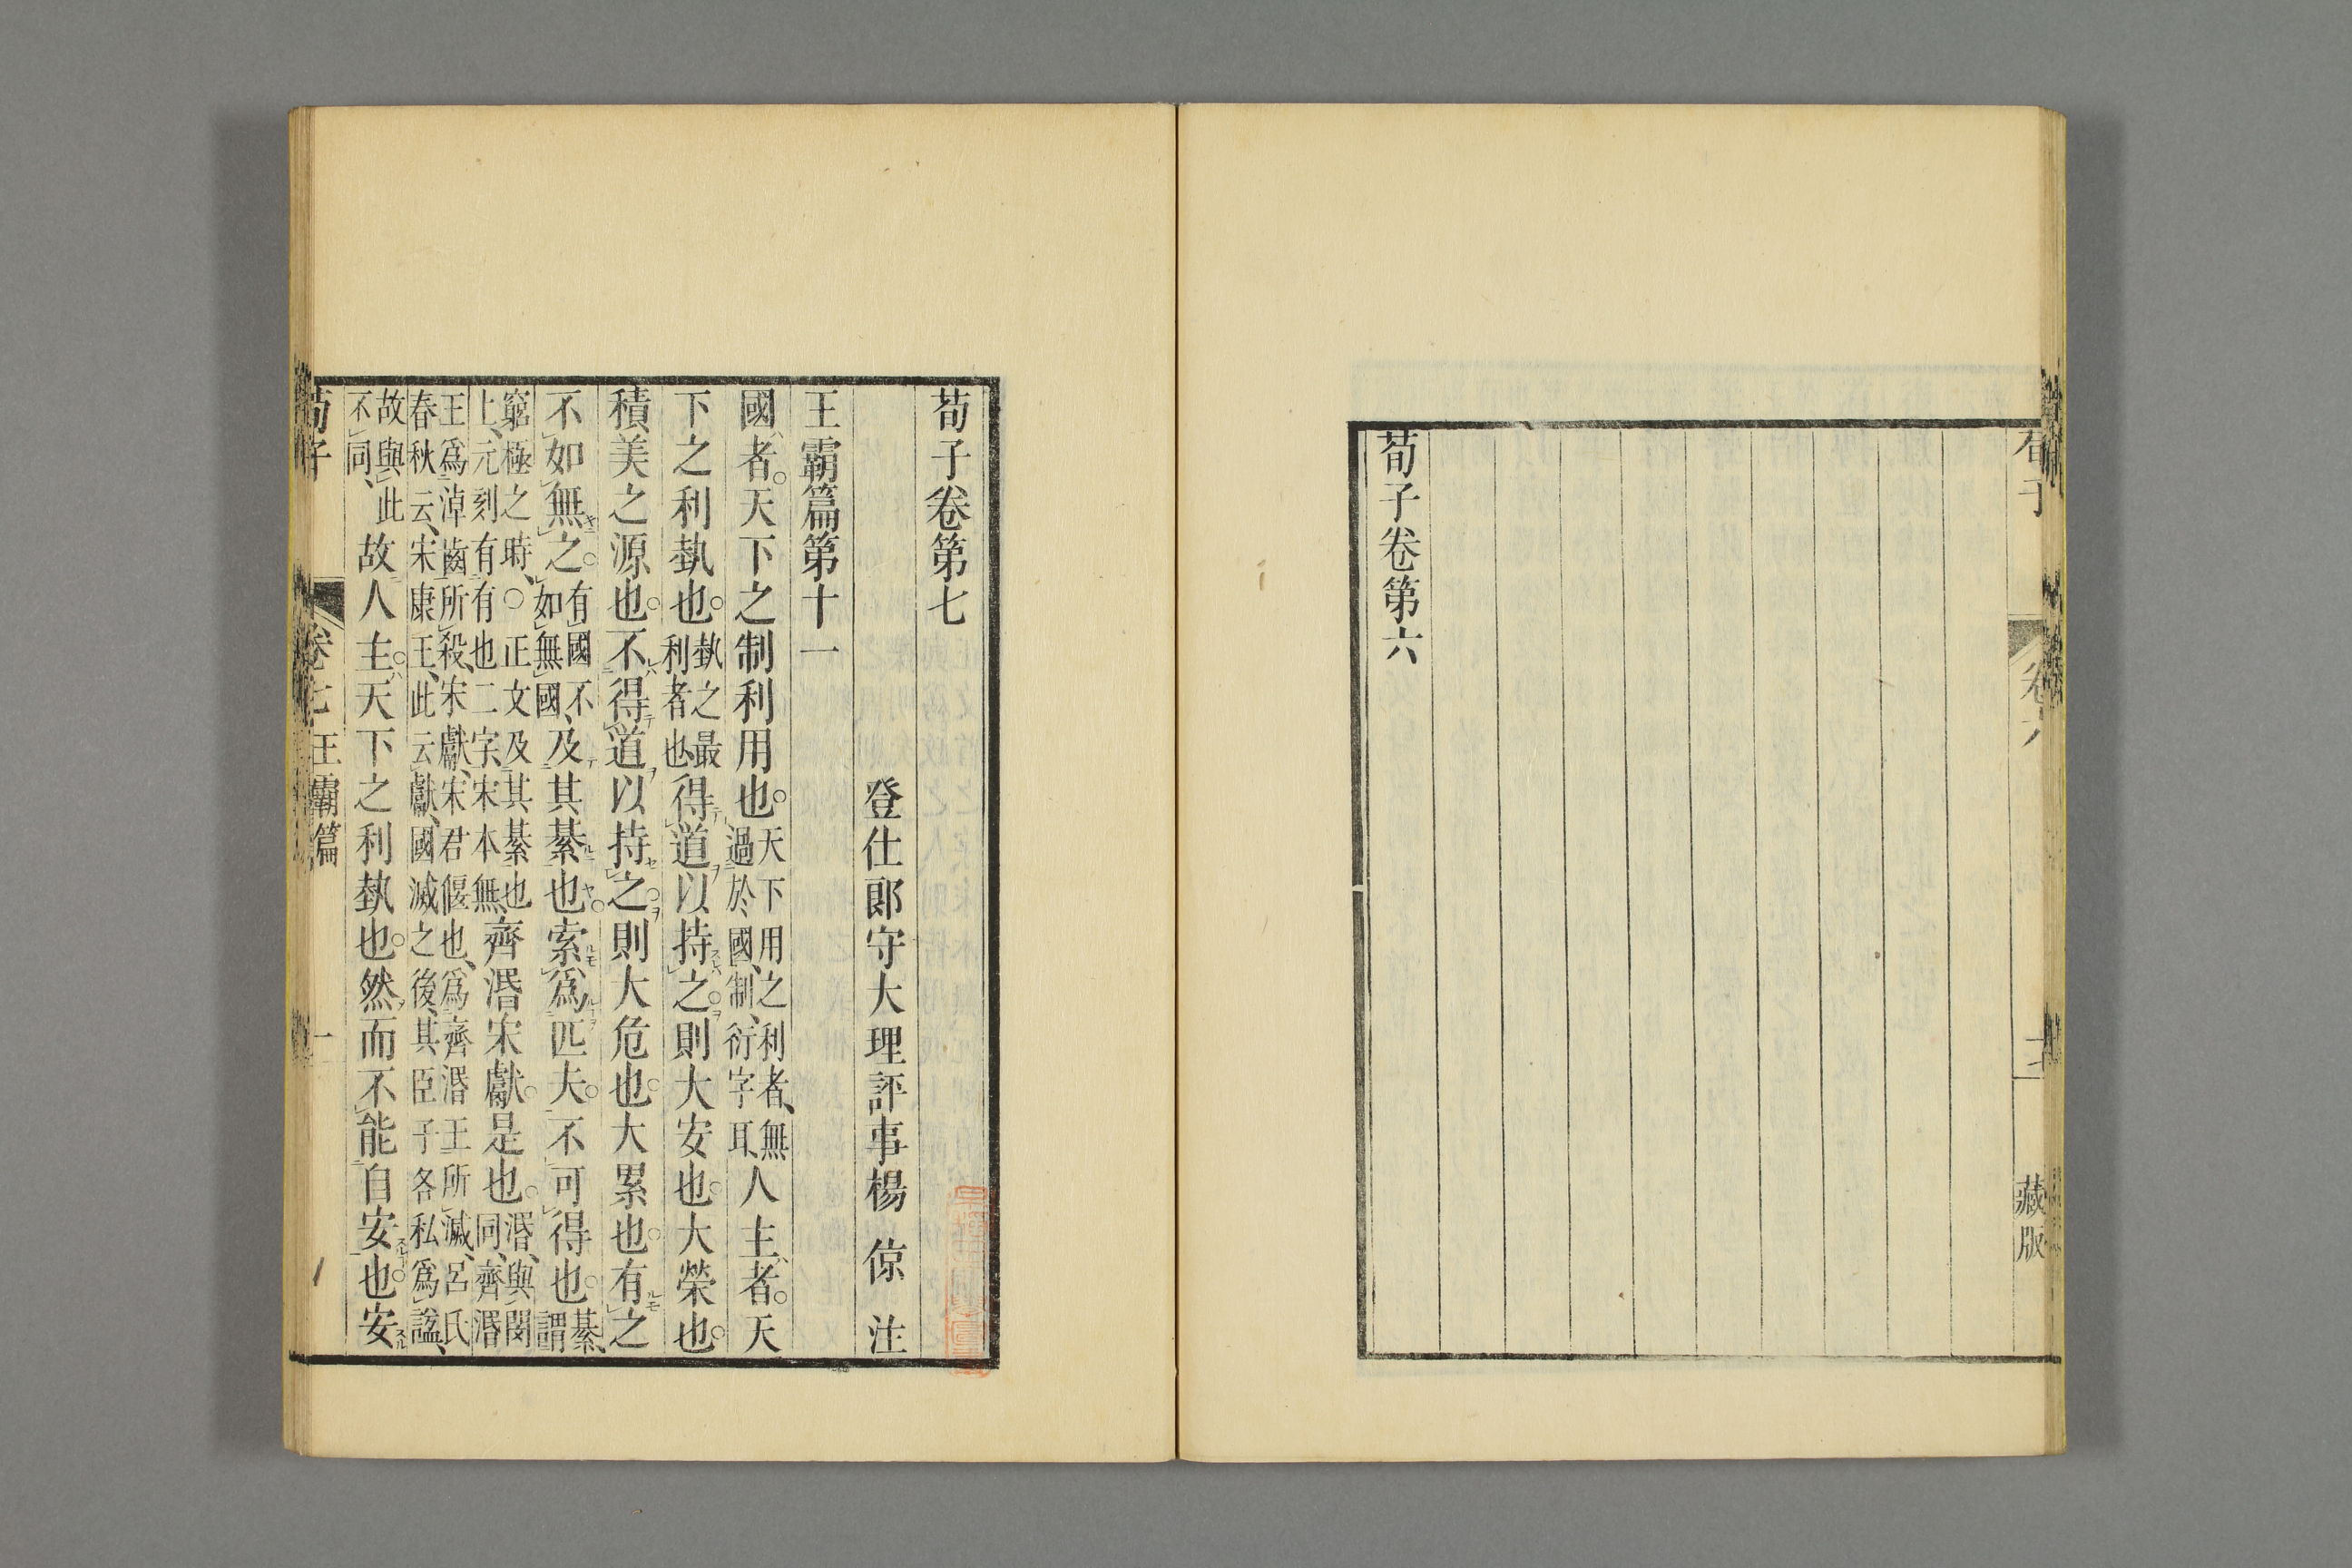 荀子卷第六
藏版
荀子卷第七
登仕郎守大理評事楊倞注
王霸篇第十一
國者。天下之制利用也。天下用之利者、無過於國、制、衍字耳、人主者。天
下之利埶也。埶之最利者也得道以持之。則大安也。大榮也。
積美之源也。不得道以持之。則大危也。大累也。有之
不如無之。有國不如無國、及其綦也。索爲匹夫。不可得也。綦、謂
窮極之時、〇正文及其綦也上、元刻有有也二字宋本無、齊湣宋獻。是也。湣、與閔同、齊湣
王爲淖齒所殺、宋獻、宋君偃也、爲齊湣王所滅、呂氏春秋云、宋康王、此云獻、國滅之後、其臣子各私爲諡、
故與此不同、故人主。天下之利埶也。然而不能自安也。安
荀子 卷七 王霸篇 一